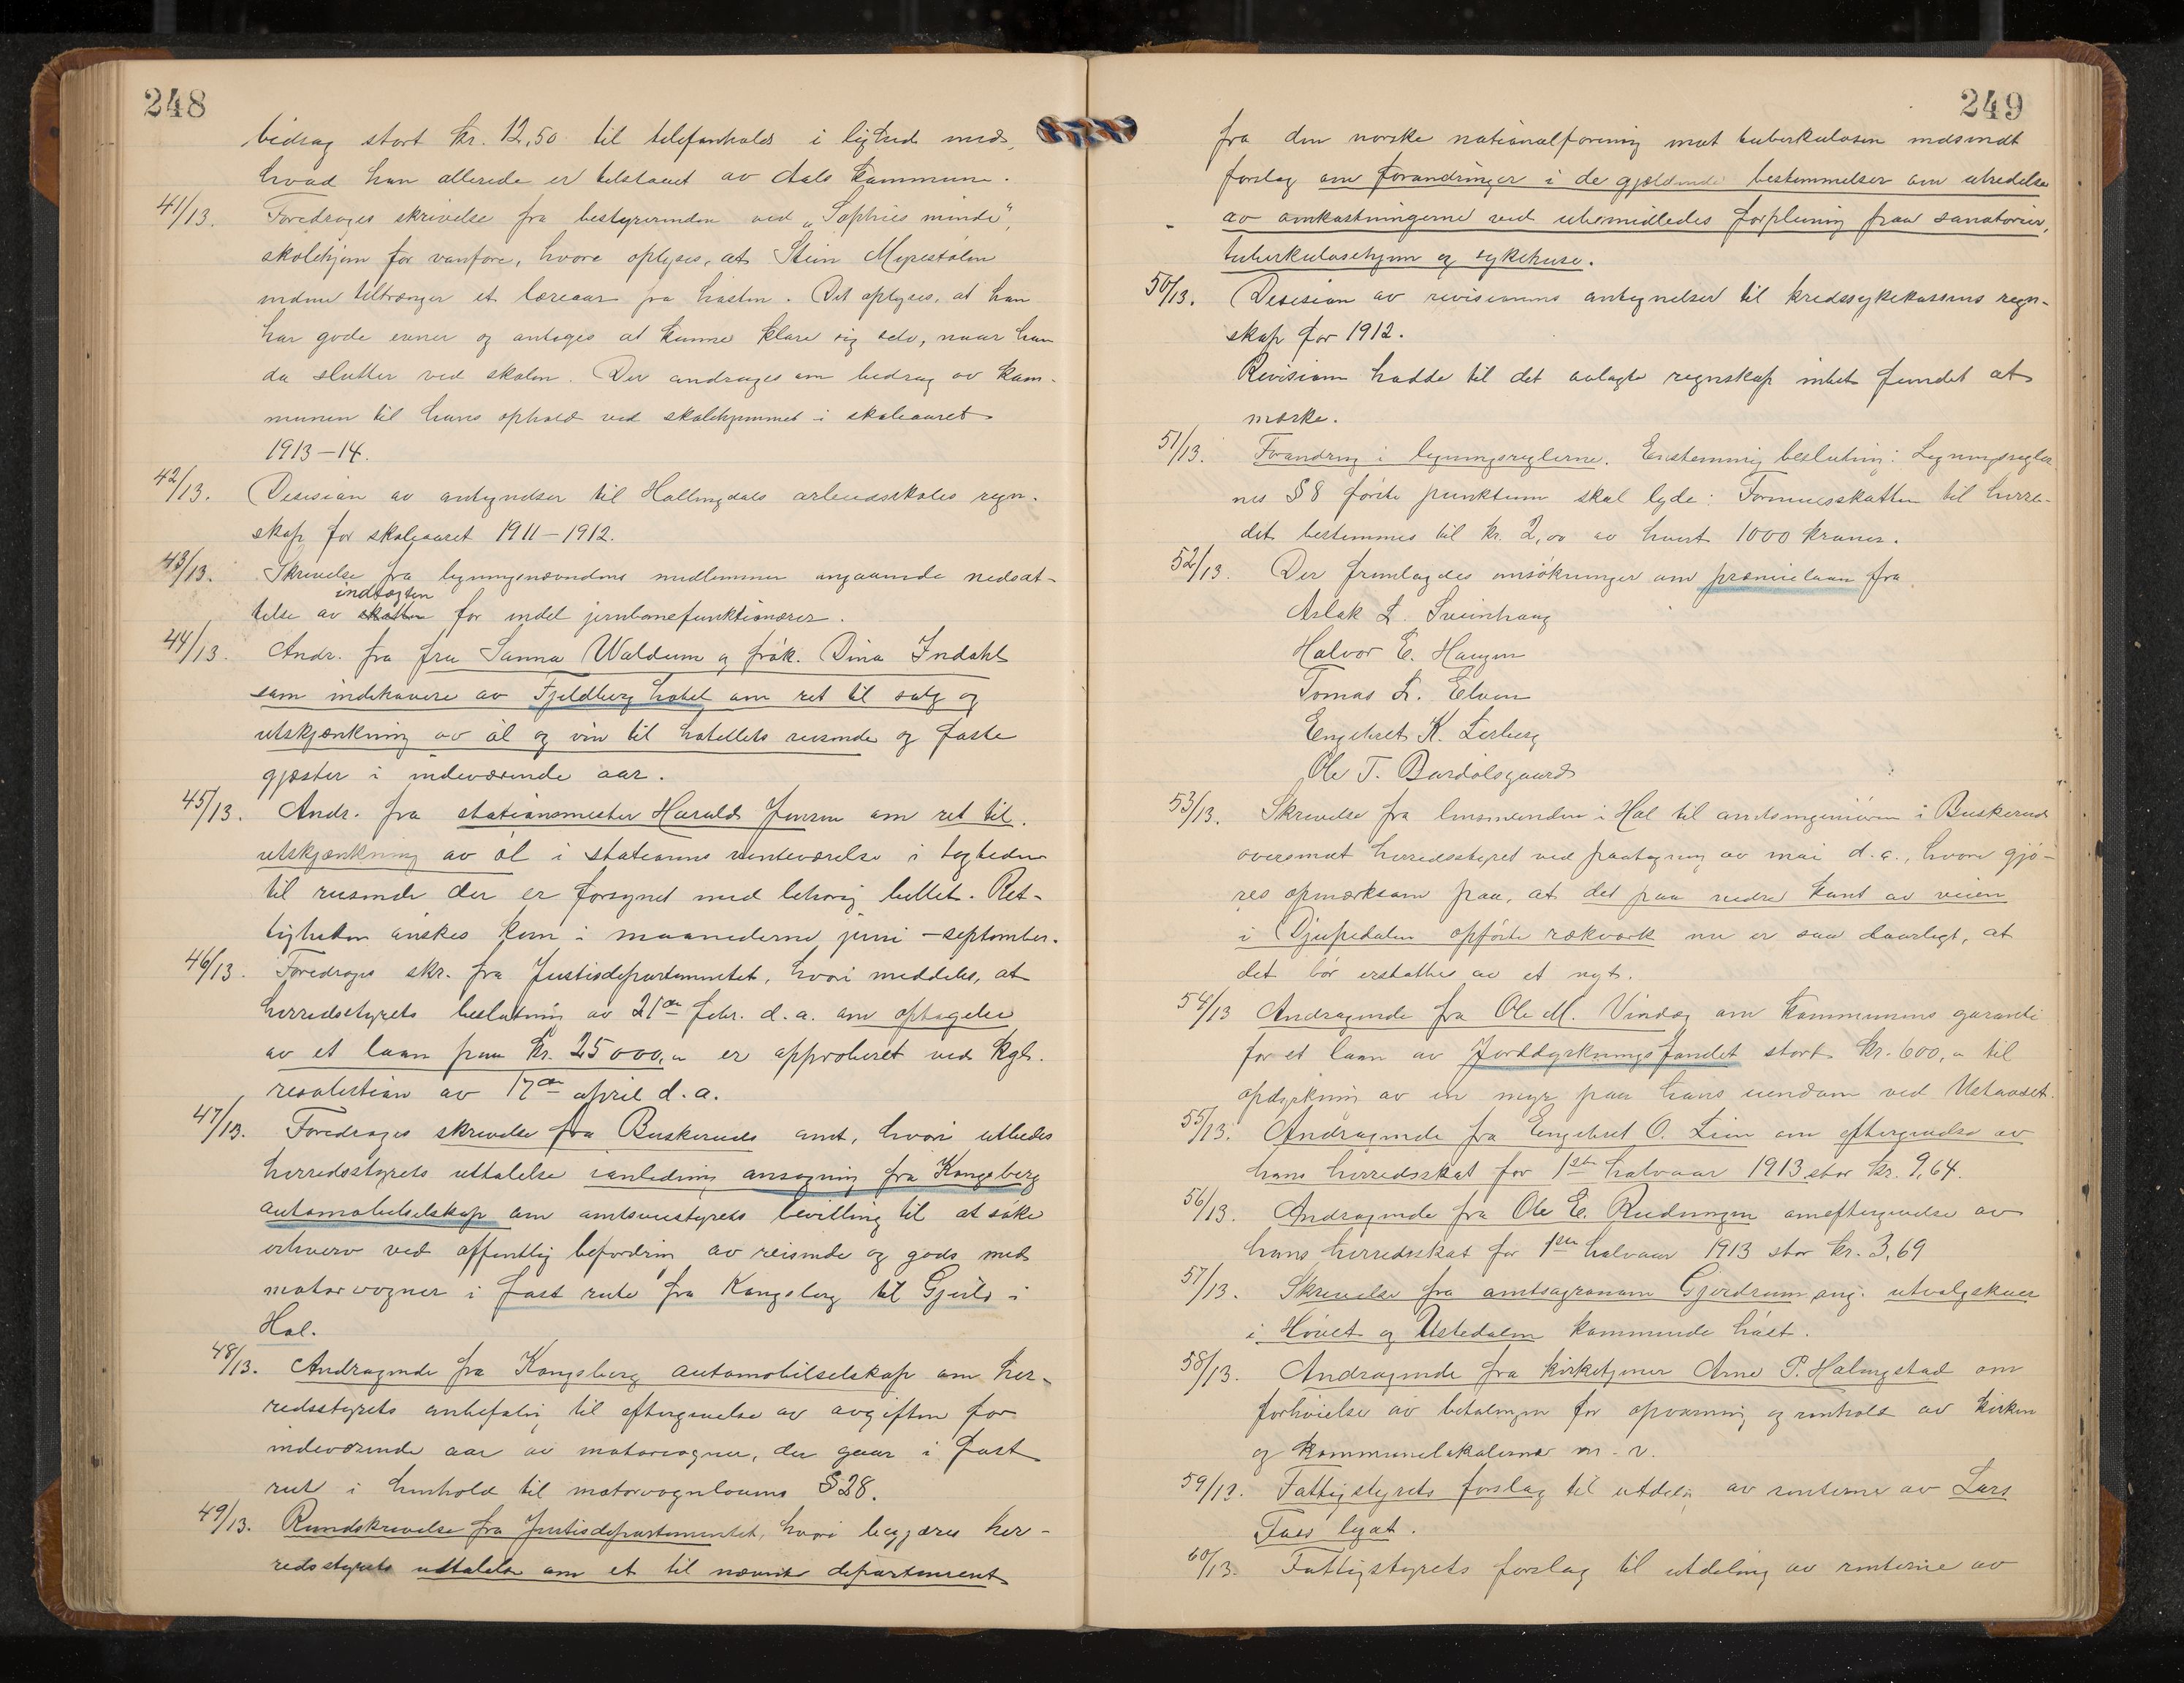 248
bidrag stort kr. 12,50 til telefonhold i lighed med,
hvad han allerede er tilstaaet av Aals kommune.
41/13. Foredroges skrivelse fra bestyrerinden ved „Sophies minde",
skolehjem for vanføre, hvore oplyses, at Stein Myrestølen
endnu tiltrænger et læreaar fra høsten. Det oplyses, at han
har gode evner og antages at kunne klare sig selv, naar han
da slutter ved skolen. Der andrages om bidrag av kom-
munen til hans ophold ved skolehjemmet i skoleaaret
1913-14.
42/13. Desision av antegnelser til Hallingdals arbeidsskoles regn-
skap for skoleaaret 1911-1912.
43/13. Skrivelse fra ligningsnævndens medlemmer angaaende nedsæt-
indtægten
telse av skatten for endel jernbanefunktionærer.
44/13. Andr. fra fru Sanna Waldum og frøk. Dina Indahl
som indehavere av Fjeldberg hotel om ret til salg og
utskjænkning av øl og vin til hotellets reisende og faste
gjæster i indeværende aar.
45/13. Andr. fra stationsmester Harald Jensen om ret til
utskjænkning av øl i stationens venteværelse i togtiden
til reisende der er forsynet med behørig billet. Ret-
tigheten ønskes kun i maanederne juni - september.
46/13. Foredroges skr. fra Justisdepartementet, hvori meddeles, at
herredsstyrets beslutning av 21de febr. d.a. om optagelse
av et laan paa kr. 25000,00 er approberet ved kgl.
resolution av 17de april d.a.
47/13. Foredroges skrivelse fra Buskeruds amt, hvori utbedes
herredsstyrets uttalelse ianledning ansøgning fra Kongsberg
automobilselskap om amtsveistyrets bevilling til at søke
erhverv ved offentlig befordring av reisende og gods med
motorvogner i fast rute fra Kongsberg til Gjeilo i
Hol.
48/13. Andragende fra Kongsberg automobilselskap om her-
redsstyrets anbefaling til eftergivelse av avgiften for
indeværende aar av motorvogner, der gaar i fast
rute i henhold til motorvognlovens § 28.
49/13. Rundskrivelse fra Justisdepartementet, hvori begjæres her-
redsstyrets uttalelse om et til nævnte departement
249
fra den norske nationalforening mot tuberkulosen indsendt
forslag om forandringer i de gjældende bestemmelser om utredelse
av omkostningerne ved ubemidledes forpleining paa sanatorier,
tuberkulosehjem og sykehuse.
50/13. Desision av revisionens antegnelser til kredssykekassens regn-
skap for 1912.
Revisionen hadde til det avlagte regnskap intet fundet at
mærke.
51/13. Forandring i ligningsreglerne. Enstemmig beslutning: Ligningsregler
nes § 8 første punktum skal lyde: Formuesskatten til herre-
det bestemmes til kr. 2,00 av hvert 1000 kroner.
52/13. Der fremlagdes ansøkninger om præmielaan fra
Aslak L. Sveinhaug
Halvor E. Haugen
Tomas L. Elven
Engebret K. Lerberg
Ole T. Bardølsgaard
53/13. Skrivelse fra lensmanden i Hol til amtsingeniøren i Buskerud
oversendt herredsstyret ved paategning av mai d.a., hvori gjø-
res opmærksom paa, at det paa nedre kant av veien
i Djupedalen opførte rækverk nu er saa daarligt, at
det bør erstattes av et nyt.
54/13 Andragende fra Ole M. Vindeg om kommunens garanti
for et laan av Jorddyrkningsfondet stort kr. 600,00 til
opdyrkning av en myr paa hans eiendom ved Ustaoset.
55/13. Andragende fra Engebret O. Lien om eftergivelse av
hans herredsskat for 1ste halvaar 1913 stor kr. 9,64.
56/13. Andragende fra Ole E. Rudningen om eftergivelse av
hans herredsskat for 1ste halvaar 1913 stor kr. 3,69
57/13. Skrivelse fra amtsagronom Gjerdrum ang. utvalgskuer
i Hovet og Ustedalen kommende høst.
58/13. Andragende fra kirketjener Arne P. Holingstad om
forhøielse av betalingen for opvarming og renhold av kirken
og kommunelokalerne m.v.
59/13. Fattigstyrets forslag til utdeling av renterne av Lars
Tuss legat.
60/13. Fattigstyrets forslag til utdeling av renterne av